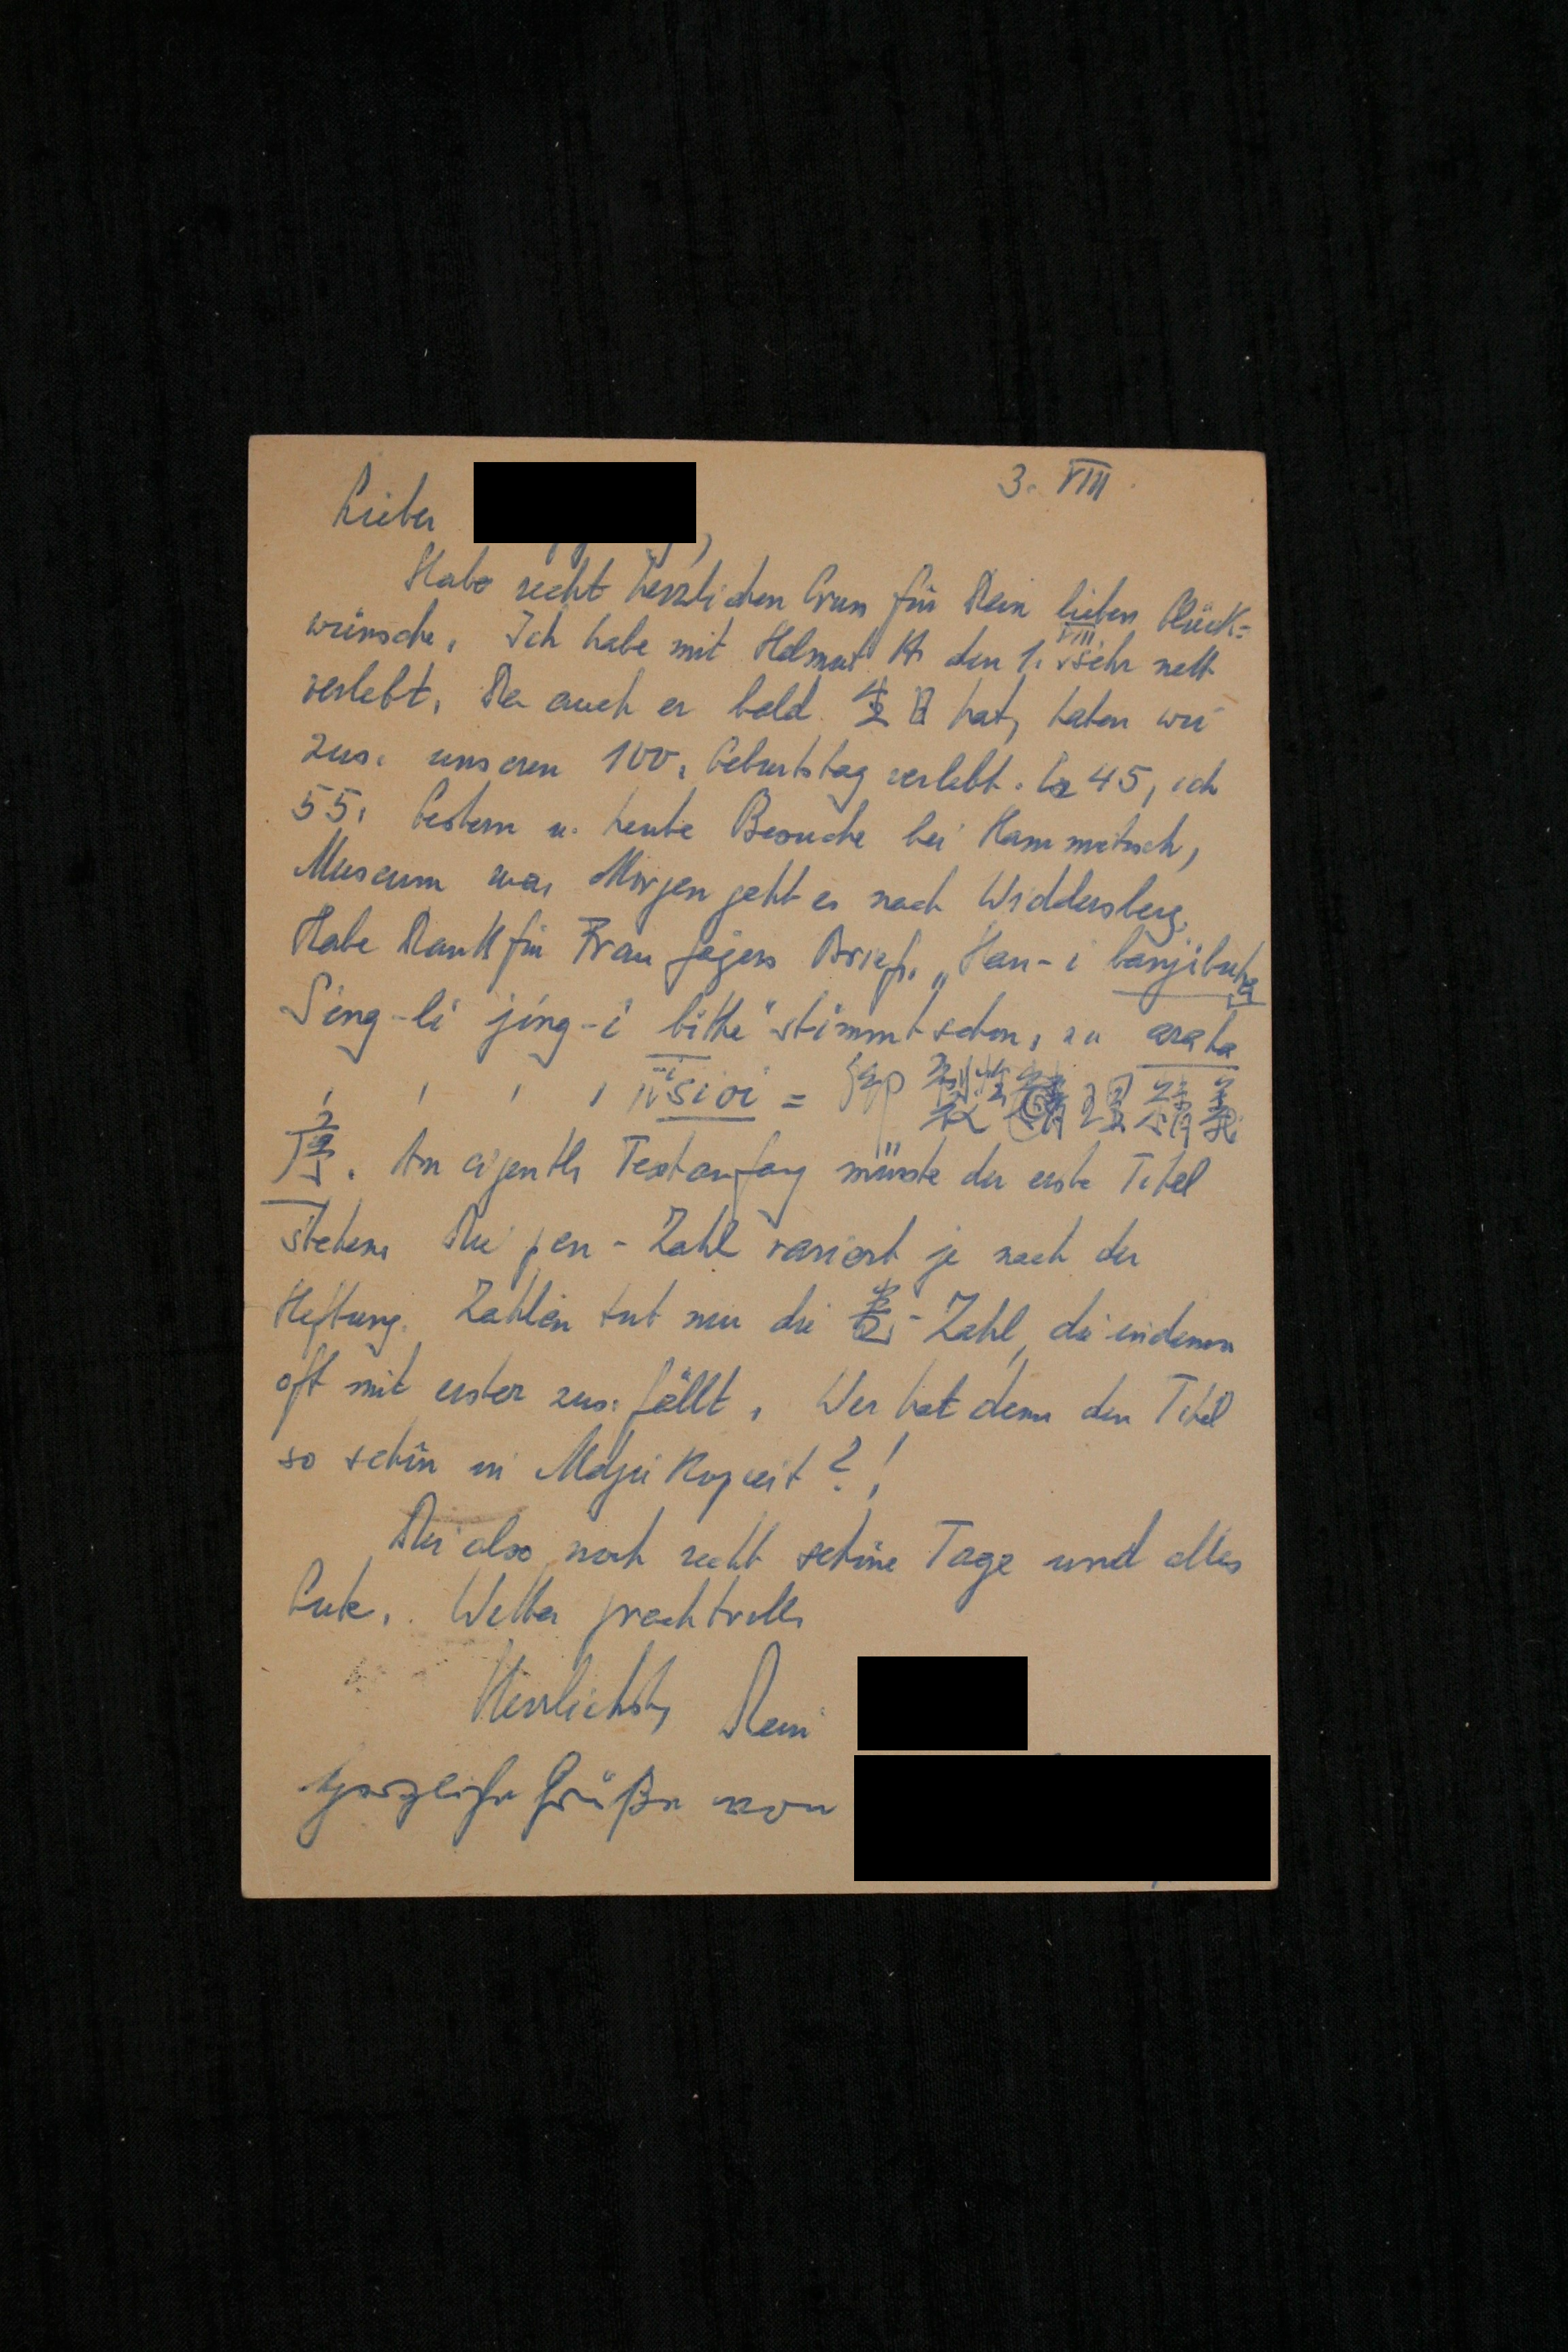 3. VIII
Lieber
Habe recht herzlichen Gruss für Dein lieben Glück-
wünsche. Ich habe mit Helmut den 1. VIII sehr nett
verlebt. Da auch er bald 生日 hat, haben wir
zus. unseren 100. Geburtstag verlebt. Er 45, ich
55. Gestern u. heute Besuche bei Hammitzsch,
Museum usw. Morgen geht es nach Widdersberg.
Habe Dank für Frau Jägers Brief. „Han-i banjibuha
Sing-li jing-i bithe" stimmt schon, zu araha
' ' ' ' sioi = 御製性理精義
序. Am eigentl. Textanfang müsste der erste Titel
stehen. Die pen-Zahl variiert je nach der
Heftung. Zählen tut nur die 卷-Zahl, die indessen
oft mit erster zus. fällt. Wer hat denn den Titel
so schön in Mdju kopiert?!
Dir also noch recht schöne Tage und alles
Gute. Wetter prachtvoll.
Herzlichst, Dein
Herzliche Grüße von